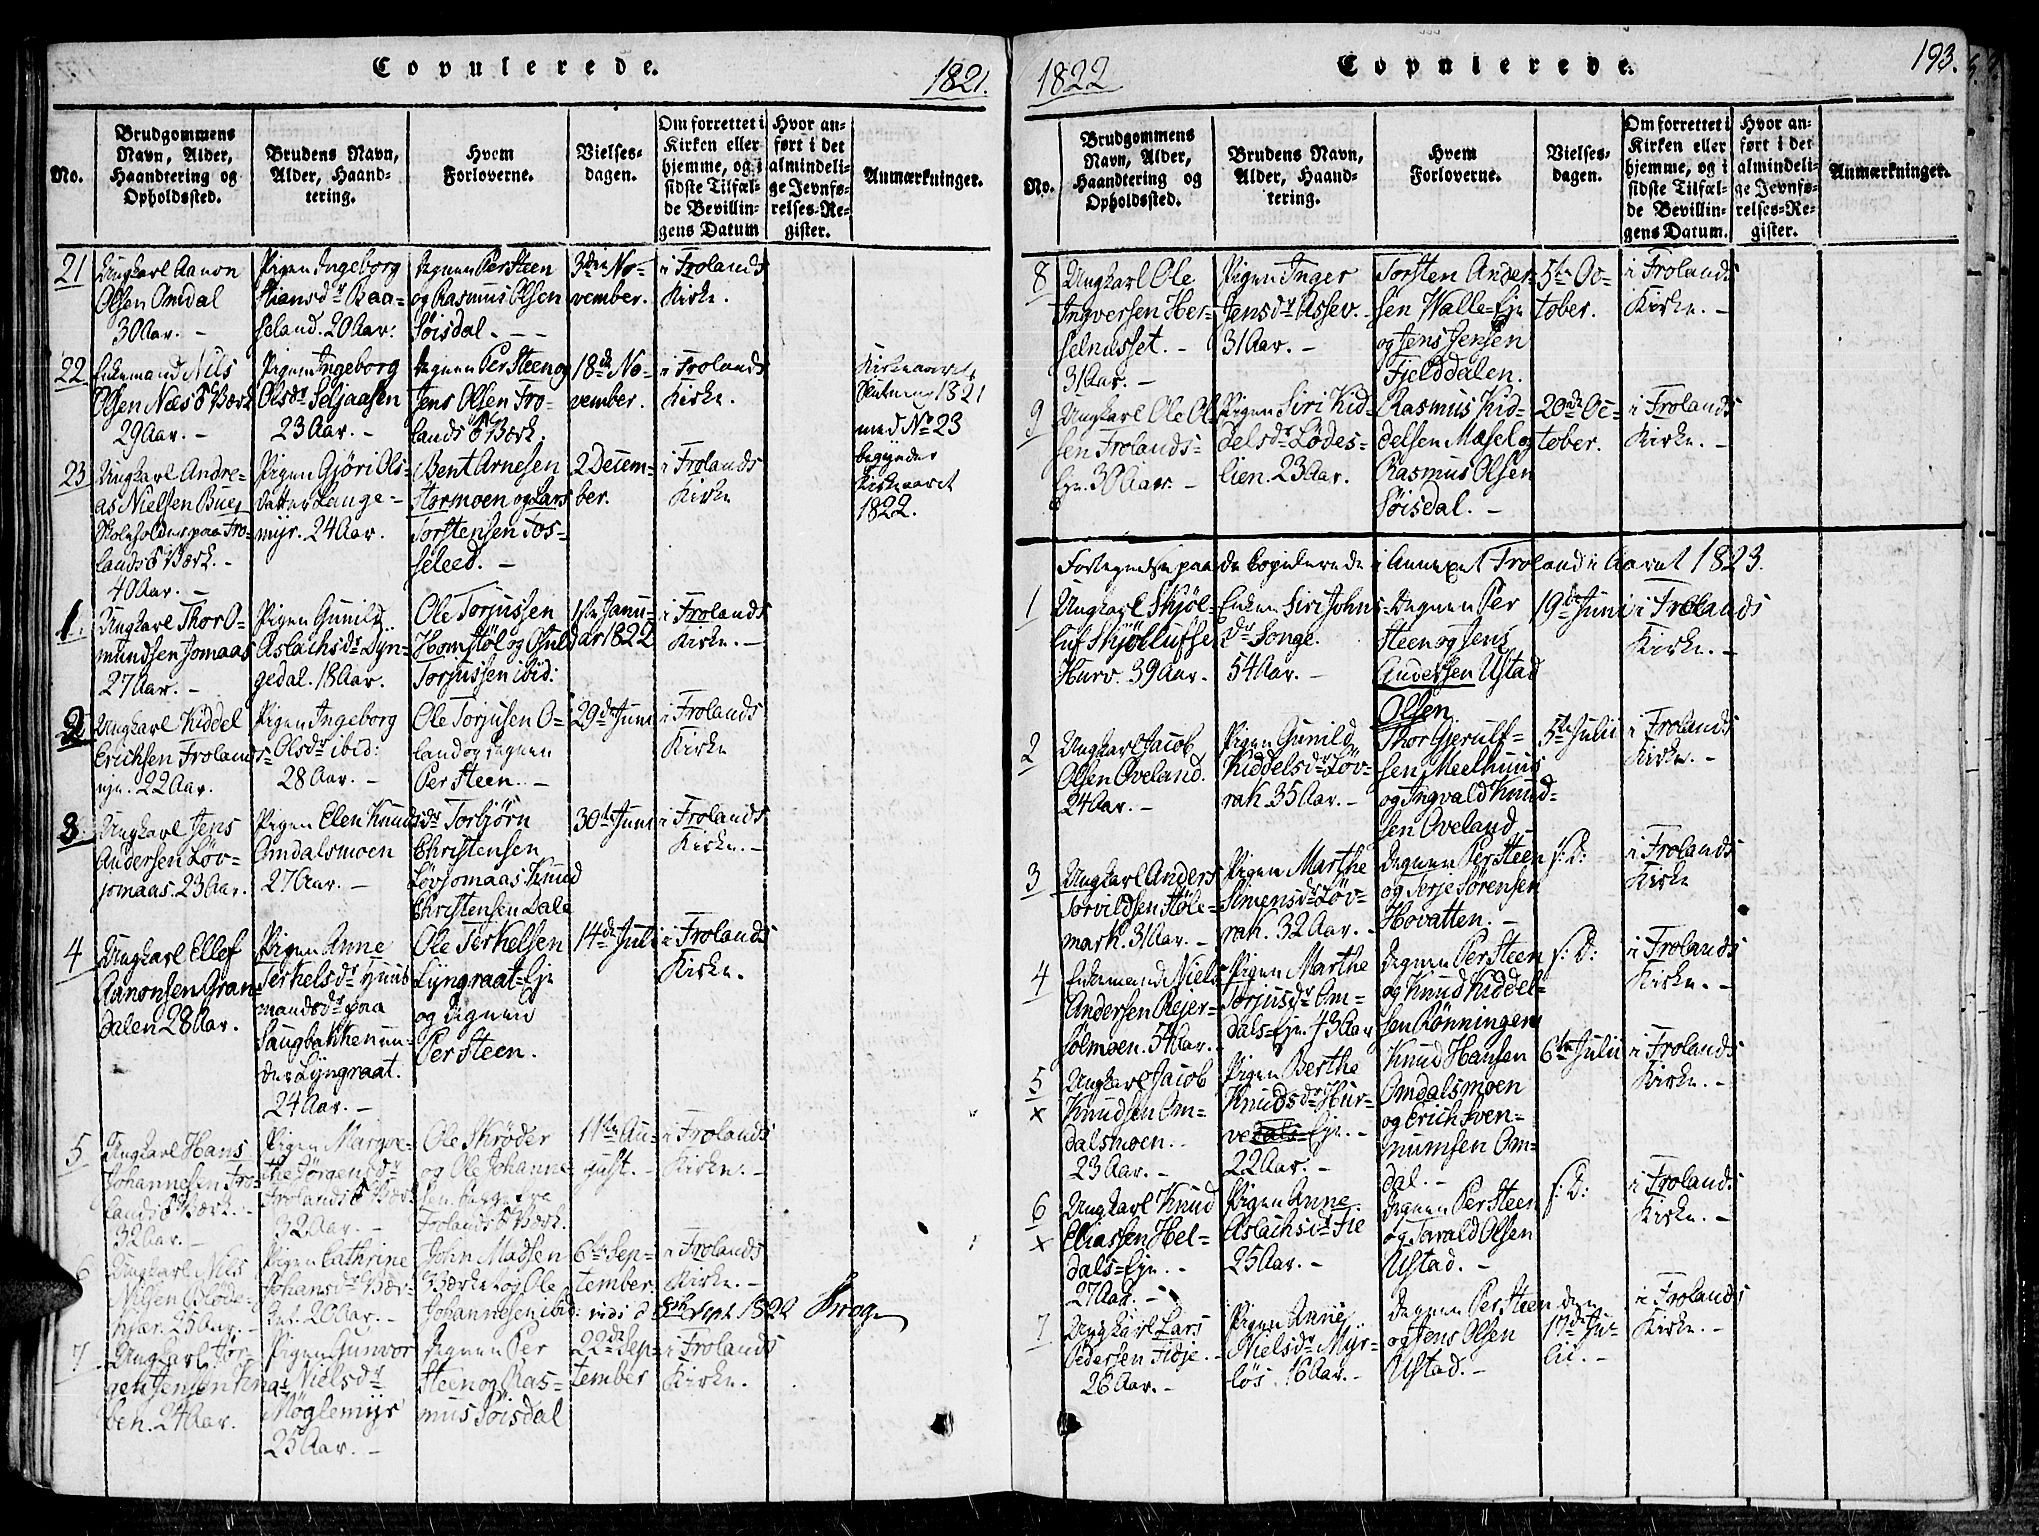 Copulerede.
1821.
No.
Brudgommens
Navn, Alder,
Haandtering og
Opholdssted.
Brudens Navn,
Alder, Haand-
tering.
Hvem
Forloverne.
Vielses-
dagen.
Om forrettet i
Kirken eller
hjemme, og i
sidste Tilfæl-
de Bevillin-
gens Datum
Hvor an-
ført i det
almindeli-
ge Jevnfø-
relses-Re-
gister.
Anmærkninger.
21
Ungkarl Aanon
Olsen Omdal
30 Aar. -
Pigen Ingeborg
Baa-
seland. 20 Aar.
Degnen Per Steen
og Rasmus Olsen
Søisdal. -
3die No-
vember.
i Frolands
Kirke.
22
Enkemand Nils
Olsen Næs Værk
29 Aar. -
Pigen Ingeborg
Olsdr Seljaasen
23 Aar. -
Degnen Per Steen og
Jens Olsen Fro-
lands Værk.
18de No-
vember.
i Frolands
Kirke.
Kirkeaarets
Slutning 1821
med No 23
begynder
Kirkeaaret
1822.
23
Ungkarl Andre-
as Nielsen Bue,
Skoleholder paa Fro-
lands Værk. -
40 Aar. -
Pigen Gjøri Ols-
datter Lange-
myr. 24 Aar.
Bent Arnesen
Stormoen og Lars
Torstensen Tos-
seleed. -
2 Decem-
ber.
i Frolands
Kirke
1.
Ungkarl Thor O-
mundsen Jomaas
27 Aar. -
Pigen Gunild
Aslachsdr Dyn-
gedal. 18 Aar.
Ole Torjussen
Homstøl og
Torjussen ibid:
1ste Janu-
ar 1822
i Frolands
Kirke. -
2
Ungkarl Kiddel
Erichsen Frolands-
eje. 22 Aar.
Pigen Ingeborg
Olsdr ibid:
28 Aar. -
Ole Torjusen O-
land og Degnen
Per Steen. -
29de Juni
i Frolands
Kirke
3.
Ungkarl Jens
Andersen Løv-
jomaas. 23 Aar.
Pigen Elen Knudsdr
Omdalsmoen
27 Aar. -
Torbjørn
Christensen
Løvjomaas Knud
Christensen Dale
30te Juni
i Frolands
Kirke. -
4
Ungkarl Ellef
Aanonsen Gran-
dalen 28 Aar.
Pigen Anne
Terkelsdr Huus-
mandsdr paa
Saugbakken un-
der Lyngraat.
24 Aar. -
Ole Terkelsen
Lyngraat-Eje
og Degnen
Per Steen.
14de Juli
i Frolands
Kirke.
5
Ungkarl Hans
Johannesen Fro-
lands Værk. -
32 Aar. -
Pigen Margre-
the Jørgensdr
Frolands Værk
32 Aar. -
Ole Skrøder
og Ole Johanne-
sen begge fra
Frolands Værk.
11te Au-
gust. -
i Frolands
Kirke. -
6
Ungkarl Nils
Nilsen Bløde-
kjær. 25 Aar. -
Pigen Cathrine
Johansdr Vær-
ket. 20 Aar. -
John Madsen
Værket og Ole
Johannesen ibid:
6te Sep-
tember.
i Frolands
Kirke. -
vidi d Sept. 1822 Krog
7
Ungkarl Jør-
gen Jensen Fina-
ben. 24 Aar.
Pigen Gunvor
Nielsdr
Møglemyr
25 Aar. -
Degnen Per
Steen og Ras-
mus Søisdal
22de Sep-
tember
i Frolands
Kirke.
1822
Copulerede.
193.
No.
Brudgommens
Navn, Alder,
Haandtering og
Opholdssted.
Brudens Navn,
Alder, Haand-
tering.
Hvem
Forloverne.
Vielses-
dagen.
Om forrettet i
Kirken eller
hjemme, og i
sidste Tilfæl-
de Bevillin-
gens Datum.
Hvor an-
ført i det
almindeli-
ge Jevnfø-
relses-Re-
gister.
Anmærkninger.
8
Ungkarl Ole
Ingversen Her-
selnusset. -
31 Aar. -
Pigen Inger
Jensdr Assev. -
31 Aar. -
Torsten Ander-
sen Walle-Eje
og Jens Jensen
Fjelddalen.
5te Oc-
tober.
i Frolands
Kirke. -
9
Ungkarl Ole Ol-
sen Frolands-
eje. 30 Aar. -
Pigen Siri Kid-
delsdr Lødes-
lien. 23 Aar.
Rasmus Kid-
delsen Mæsel og
Rasmus Olsen
Søisdal. -
20de Oc-
tober.
i Frolands
Kirke. -
Fortegnelse paa de Copulerede i Annexet Froland i Aaret 1823.
1
Ungkarl Skjøl-
luf Skjøllufsen
Hurv. 39 Aar.
Enken Siri Johns-
dr Songe.
54 Aar. -
Degnen Per
Steen og Jens
Andersen Ustad
Olsen
19de Juni
i Frolands
Kirke. -
2
Ungkarl Jacob
Olsen Oveland.
24 Aar. -
Pigen Gunild
Kiddelsdr Løv-
rak. 35 Aar. -
Thor Gjerulf-
sen Meelhuus
og Ingvald Knud-
sen Oveland -
5te Julii
i Frolands
Kirke. -
3
Ungkarl Anders
Torvildsen Støle-
mark. 31 Aar. -
Pigen Marthe
Simensdr Løv-
rak. 32 Aar. -
Degnen Per Steen
og Terje Sørensen
Hovatten. -
s: D:
i Frolands
Kirke
4
Enkemand Niels
Andersen Rejer-
sølmoen. 54 Aar.
Pigen Marthe
Torjusdr Om-
dals-Eje. 43 Aar
Degnen Per Steen
og Knud Kiddel-
sen Rønningen
s: D:
i Frolands
Kirke. -
5
x
Ungkarl Jacob
Knudsen Om-
dalsmoen.
23 Aar. -
Pigen Berthe
Knudsdr Hur-
ve dals-Eje. -
22 Aar. -
Knud Hansen
Omdalsmoen
og Erich Sven-
numsen Om-
dal. -
6te Julii
i Frolands
Kirke. -
6
x
Ungkarl Knud
Eliassen Hel-
dals-Eje. -
27 Aar. -
Pigen Anne
Aslachsdr Fie
25 Aar. -
Degnen Per Steen
og Tarald Olsen
Ustad. -
s: D:
i Frolands
Kirke. -
7
Ungkarl Lars
Pedersen Fidje. -
26 Aar. -
Pigen Anne
Nielsdr Myr-
løs. 16 Aar. -
Degnen Per Steen
og Jens Olsen
Ustad. -
den
17de Ju-
lii. -
i Frolands
Kirke. -